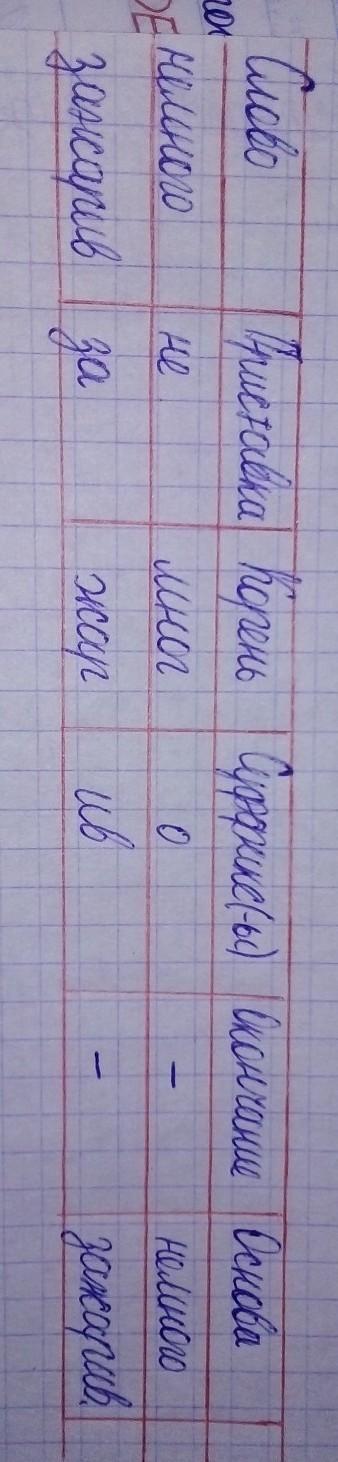 Слово Приставка Корень Суффикс(-ы) Окончание Основа
немного не мног о - немного
зажарив за жар ив - зажарив